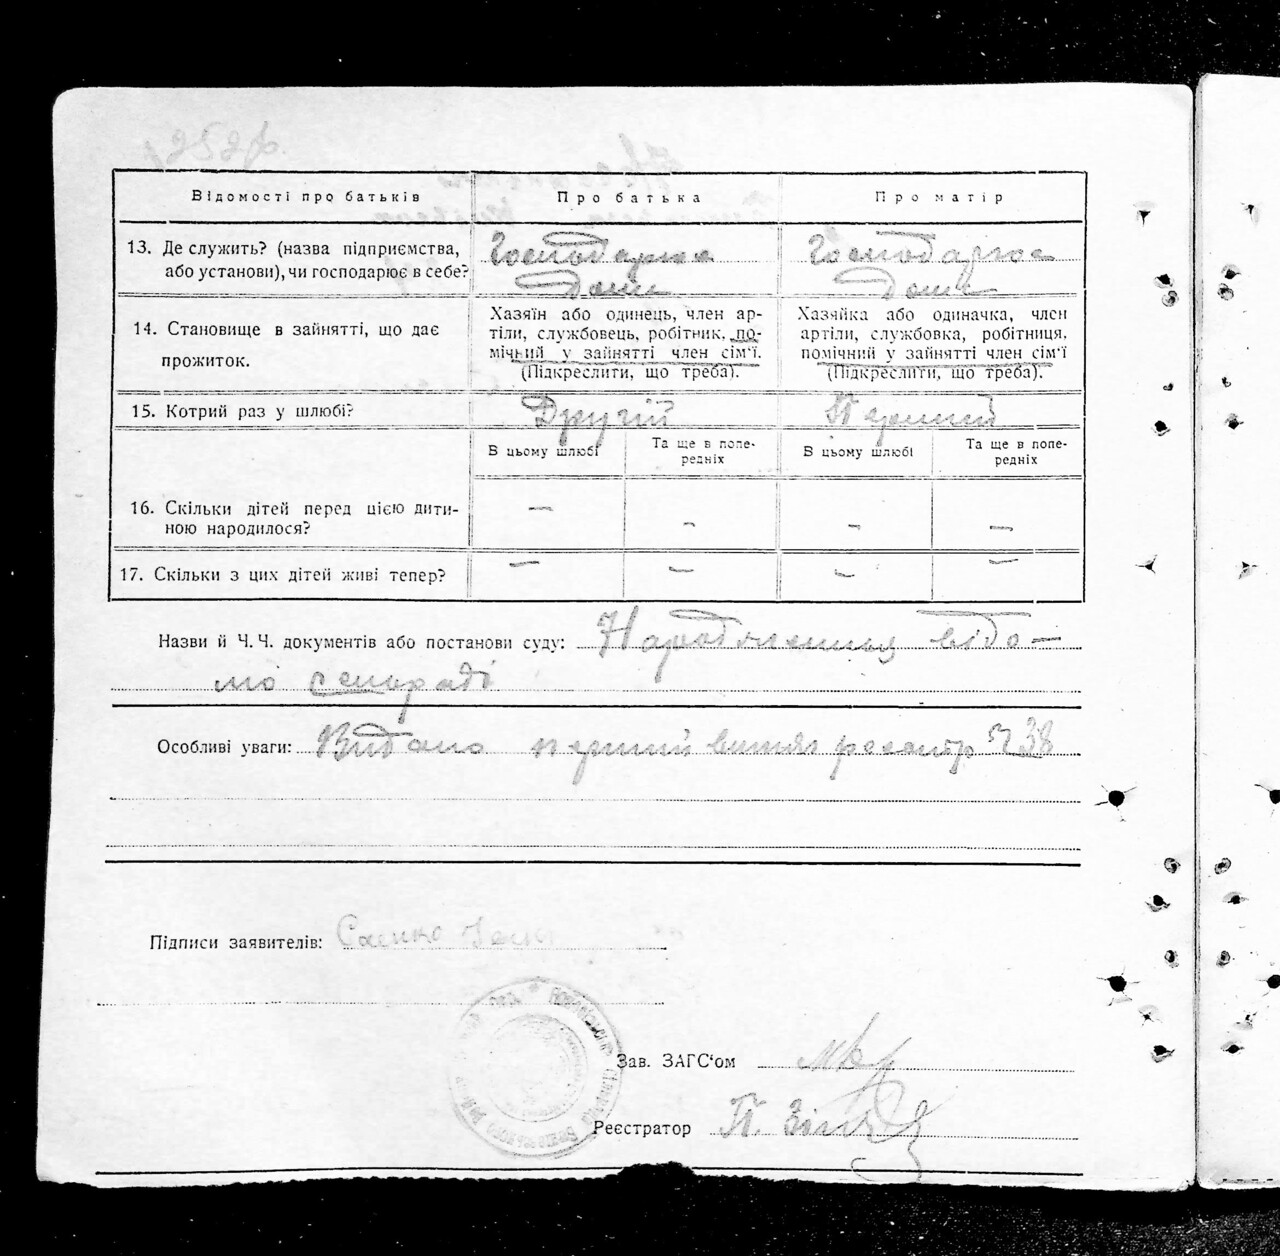 1252р.
Відомості про батьків Про батька Про матір
13. Де служить? (назва підприємства, або установи), чи господарює в себе?
Господарює
Дома
Господарює
Дома
14. Становище в зайнятті, що дає прожиток.
Хазяїн або одинець, член ар-
тіли, службовець, робітник, по-
мічний у зайнятті член сім'ї.
(Підкреслити, що треба).
Хазяйка або одиначка, член
артіли, службовка, робітниця,
помічний у зайнятті член сім'ї
(Підкреслити, що треба).
15. Котрий раз у шлюбі? Другій Перший
В цьому шлюбі Та ще в попе-
редніх
В цьому шлюбі Та ще в попе-
редніх
16. Скільки дітей перед цією дити-
ною народилося?
— — — —
17. Скільки з цих дітей живі тепер? — — — —
Назви й Ч. Ч. документів або постанови суду: Народження відо-
мо сільраді
Особливі уваги: Видано перший витяг реєстр № 38
Підписи заявителів: Саенко
Зав. ЗАГС'ом
Реєстратор П.